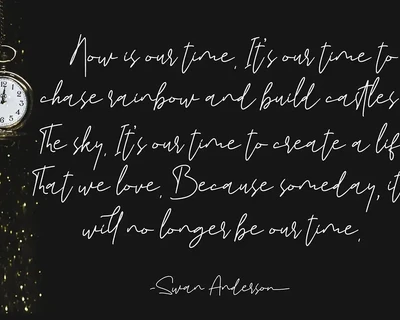 Now is our time. It's our time to
chase rainbow and build castles
The sky. It's our time to create a lif
That we love. Because someday, it
will no longer be our time.
-Swan Anderson